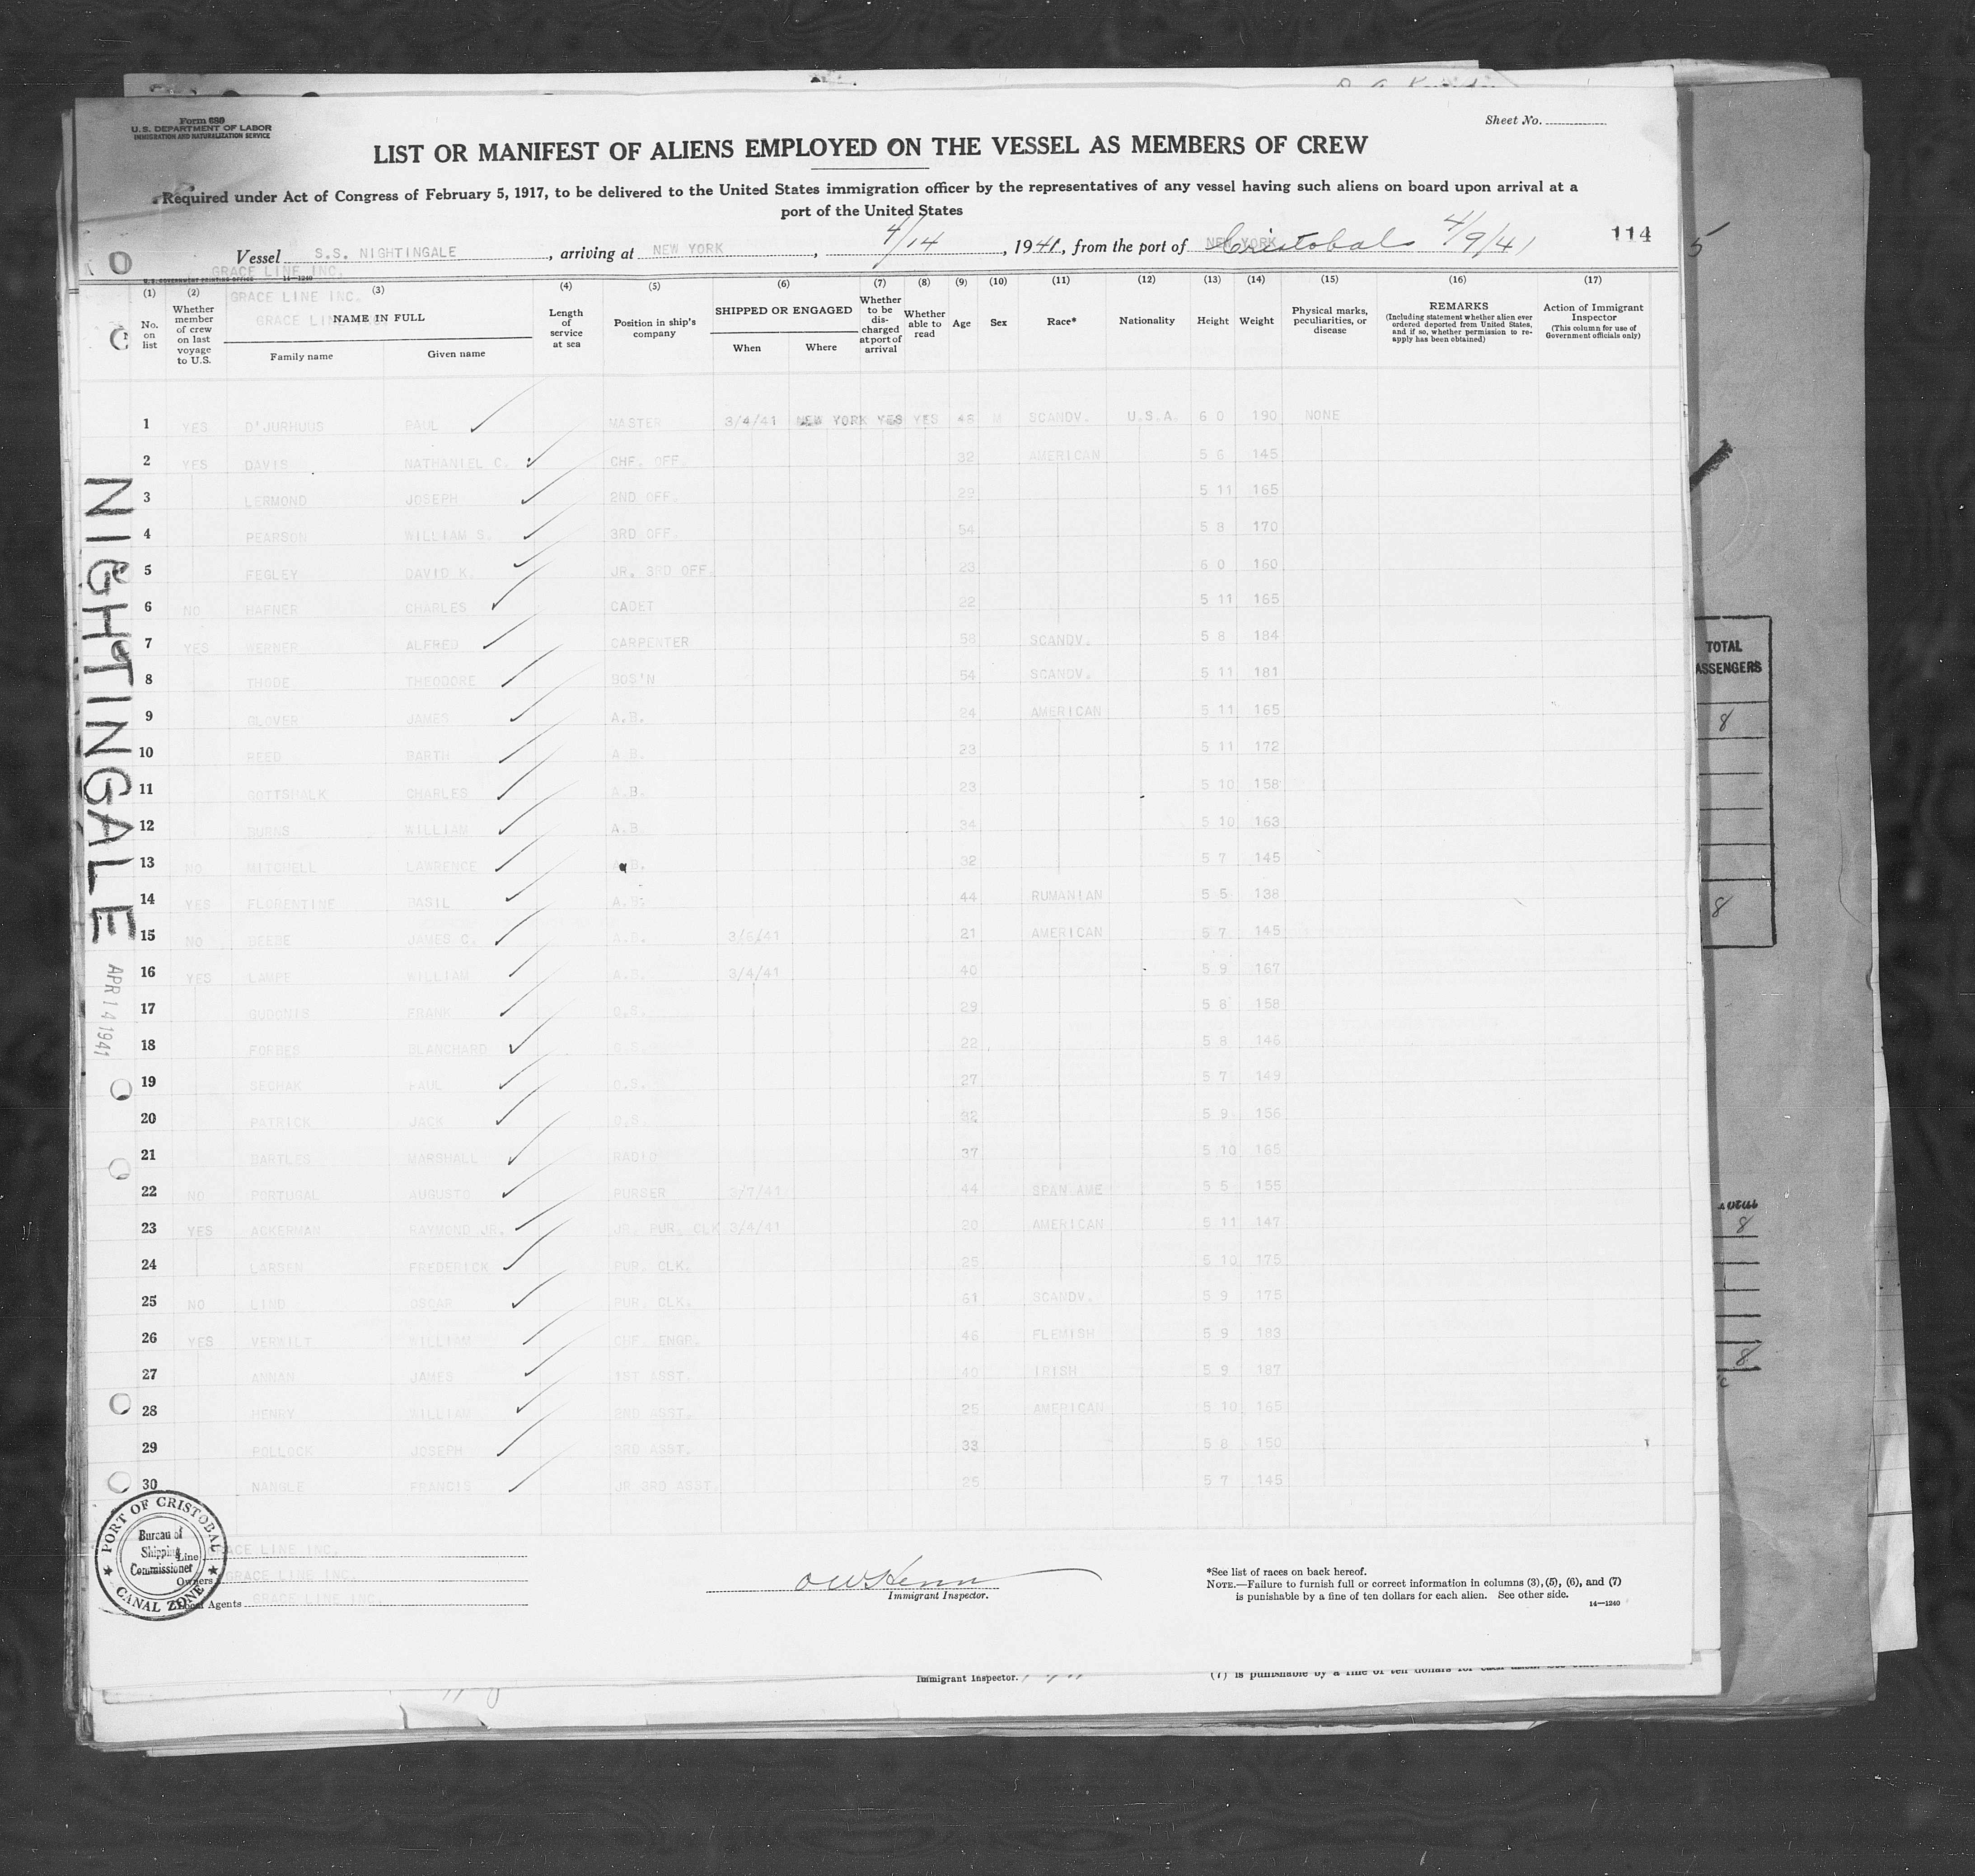 Form 689
U.S. DEPARTMENT OF LABOR
IMMIGRATION AND NATURALIZATION SERVICE
Sheet No.
LIST OR MANIFEST OF ALIENS EMPLOYED ON THE VESSEL AS MEMBERS OF CREW
Required under Act of Congress of February 5, 1917, to be delivered to the United States immigration officer by the representatives of any vessel having such aliens on board upon arrival at a
port of the United States
Vessel S.S. NIGHTINGALE, arriving at NEW YORK, 4/14, 1941, from the port of NEW YORK Cristobal 4/9/41
114
5
GRACE LINE INC.
U.S. GOVERNMENT PRINTING OFFICE 14—1240
GRACE LINE INC.
GRACE LINE INC.
(1) (2) (3) (4) (5) (6) (7) (8) (9) (10) (11) (12) (13) (14) (15) (16) (17)
No. on list
Whether member of crew on last voyage to U.S.
NAME IN FULL
Family name Given name
Length of service at sea
Position in ship's company
SHIPPED OR ENGAGED
When Where
Whether to be discharged at port of arrival
Whether able to read
Age
Sex
Race*
Nationality
Height
Weight
Physical marks, peculiarities, or disease
REMARKS
(Including statement whether alien ever ordered deported from United States, and if so, whether permission to reapply has been obtained)
Action of Immigrant Inspector
(This column for use of Government officials only)
1 YES D'JURHUUS PAUL MASTER 3/4/41 NEW YORK YES YES 48 M SCANDV. U.S.A. 6 0 190 NONE
2 YES DAVIS NATHANIEL C. CHF. OFF. 32 AMERICAN 5 6 145
3 LERMOND JOSEPH 2ND OFF. 29 5 11 165
4 PEARSON WILLIAM S. 3RD OFF. 54 5 8 170
5 FEGLEY DAVID K. JR. 3RD OFF. 23 6 0 160
6 NO HAFNER CHARLES CADET 22 5 11 165
7 YES WERNER ALFRED CARPENTER 58 SCANDV. 5 8 184
8 THODE THEODORE BOS'N 54 SCANDV. 5 11 181
9 GLOVER JAMES A.B. 24 AMERICAN 5 11 165
10 REED BARTH A.B. 23 5 11 172
11 GOTTSHALK CHARLES A.B. 23 5 10 158
12 BURNS WILLIAM A.B. 34 5 10 163
13 NO MITCHELL LAWRENCE A.B. 32 5 7 145
14 YES FLORENTINE BASIL A.B. 44 RUMANIAN 5 5 138
15 NO BEEBE JAMES C. A.B. 3/6/41 21 AMERICAN 5 7 145
16 YES LAMPE WILLIAM A.B. 3/4/41 40 5 9 167
17 GUDONIS FRANK O.S. 29 5 8 158
18 FORBES BLANCHARD O.S. 22 5 8 146
19 SECHAK PAUL O.S. 27 5 7 149
20 PATRICK JACK O.S. 32 5 9 156
21 BARTLES MARSHALL RADIO 37 5 10 165
22 NO PORTUGAL AUGUSTO PURSER 3/7/41 44 SPAN AME 5 5 155
23 YES ACKERMAN RAYMOND JR. JR. PUR. CLK 3/4/41 20 AMERICAN 5 11 147
24 LARSEN FREDERICK PUR. CLK. 25 5 10 175
25 NO LIND OSCAR PUR. CLK. 61 SCANDV. 5 9 175
26 YES VERWILT WILLIAM CHF. ENGR. 46 FLEMISH 5 9 183
27 ANNAN JAMES 1ST ASST. 40 IRISH 5 9 187
28 HENRY WILLIAM 2ND ASST. 25 AMERICAN 5 10 165
29 POLLOCK JOSEPH 3RD ASST. 33 5 8 150
30 NANGLE FRANCIS JR 3RD ASST. 25 5 7 145
NIGHTINGALE
APR 14 1941
PORT OF CRISTOBAL
Bureau of Shipping Commissioner
CANAL ZONE
Line GRACE LINE INC.
Owners GRACE LINE INC.
Local Agents GRACE LINE INC.
Immigrant Inspector.
*See list of races on back hereof.
NOTE.—Failure to furnish full or correct information in columns (3), (5), (6), and (7)
is punishable by a fine of ten dollars for each alien. See other side.
14—1240
Immigrant Inspector.
TOTAL
ASSENGERS
8
8
8
8